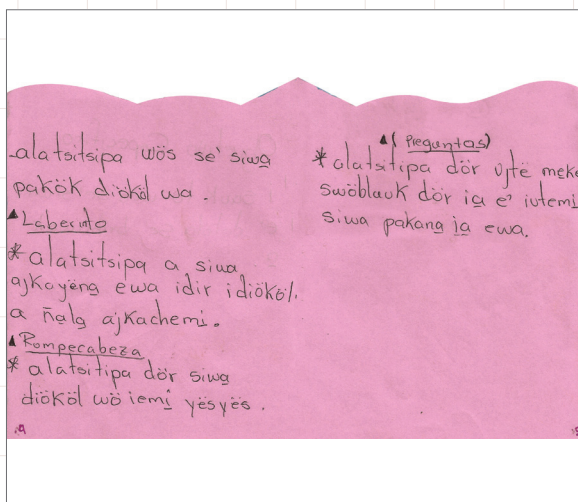 alatsitsipa wös se' siwa̱
pakök diököl wa.
▲Laberinto
* alatsitsipa a siwa
ajkoyëna̱ ewa idir idiököl.
a ñala̱ ajkachemi̱.
▲Rompecabeza
* alatsitipa dör siwa̱
diököl wö iemi̱ yësyës.
▲(Preguntas)
* alatsitipa dör ujtë meke
swöblauk dör ia̱ e' iutemi
siwa pakana̱ ia̱ ewa.